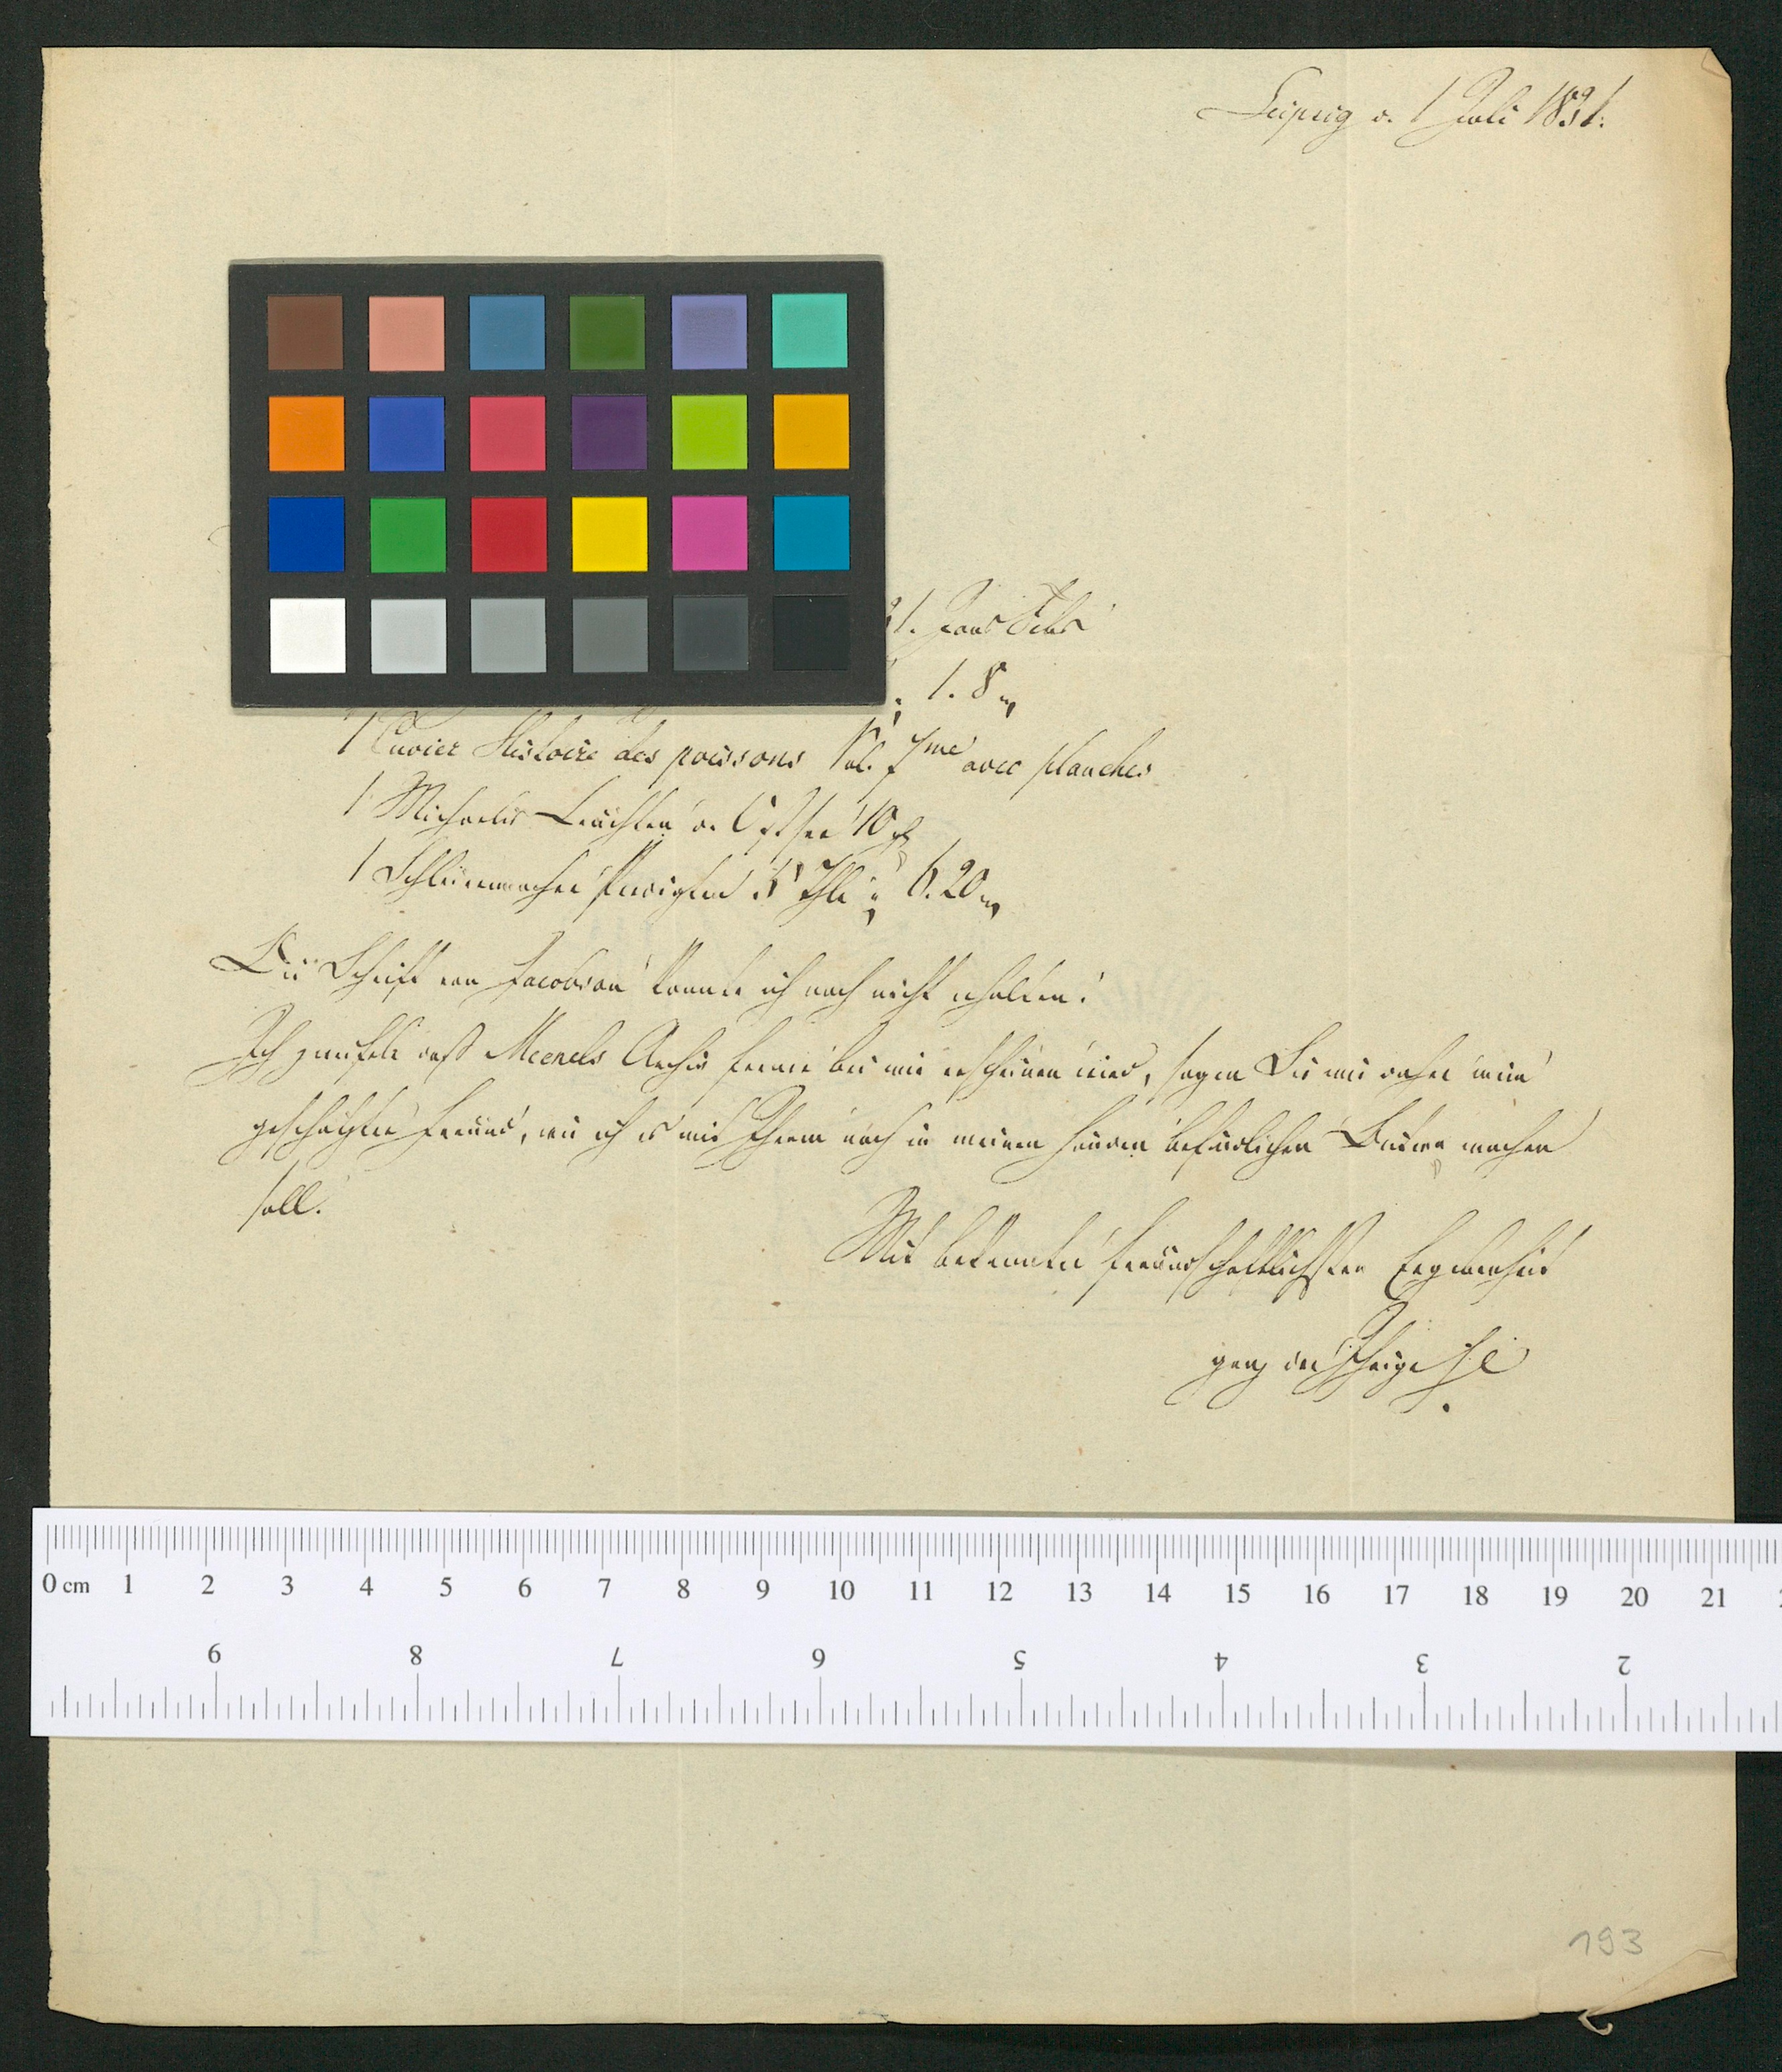 Leipzig d. 1 Juli 1831.
31. Janr Febr
1. 8
1 Cuvier Histoire des poissons Vol. 7me avec planches
1 Michaelis Leuchten d. Ostsee 10
1 Schleiermacher Predigten 5 Thle 6. 20
Die Schrift von Jacobson konnte ich noch nicht erhalten.
Ich zweifele daß Meckels Archiv ferner bei mir erscheinen wird, sagen Sie mir daher mein
geschätzter Freund, wie ich es mit Ihrem noch in meinen Händen befindlichen machen
soll.
Mit bekannter freundschaftlichster Ergebenheit
ganz der Ihrige
0 cm 1 2 3 4 5 6 7 8 9 10 11 12 13 14 15 16 17 18 19 20 21
9 8 7 6 5 4 3 2
193